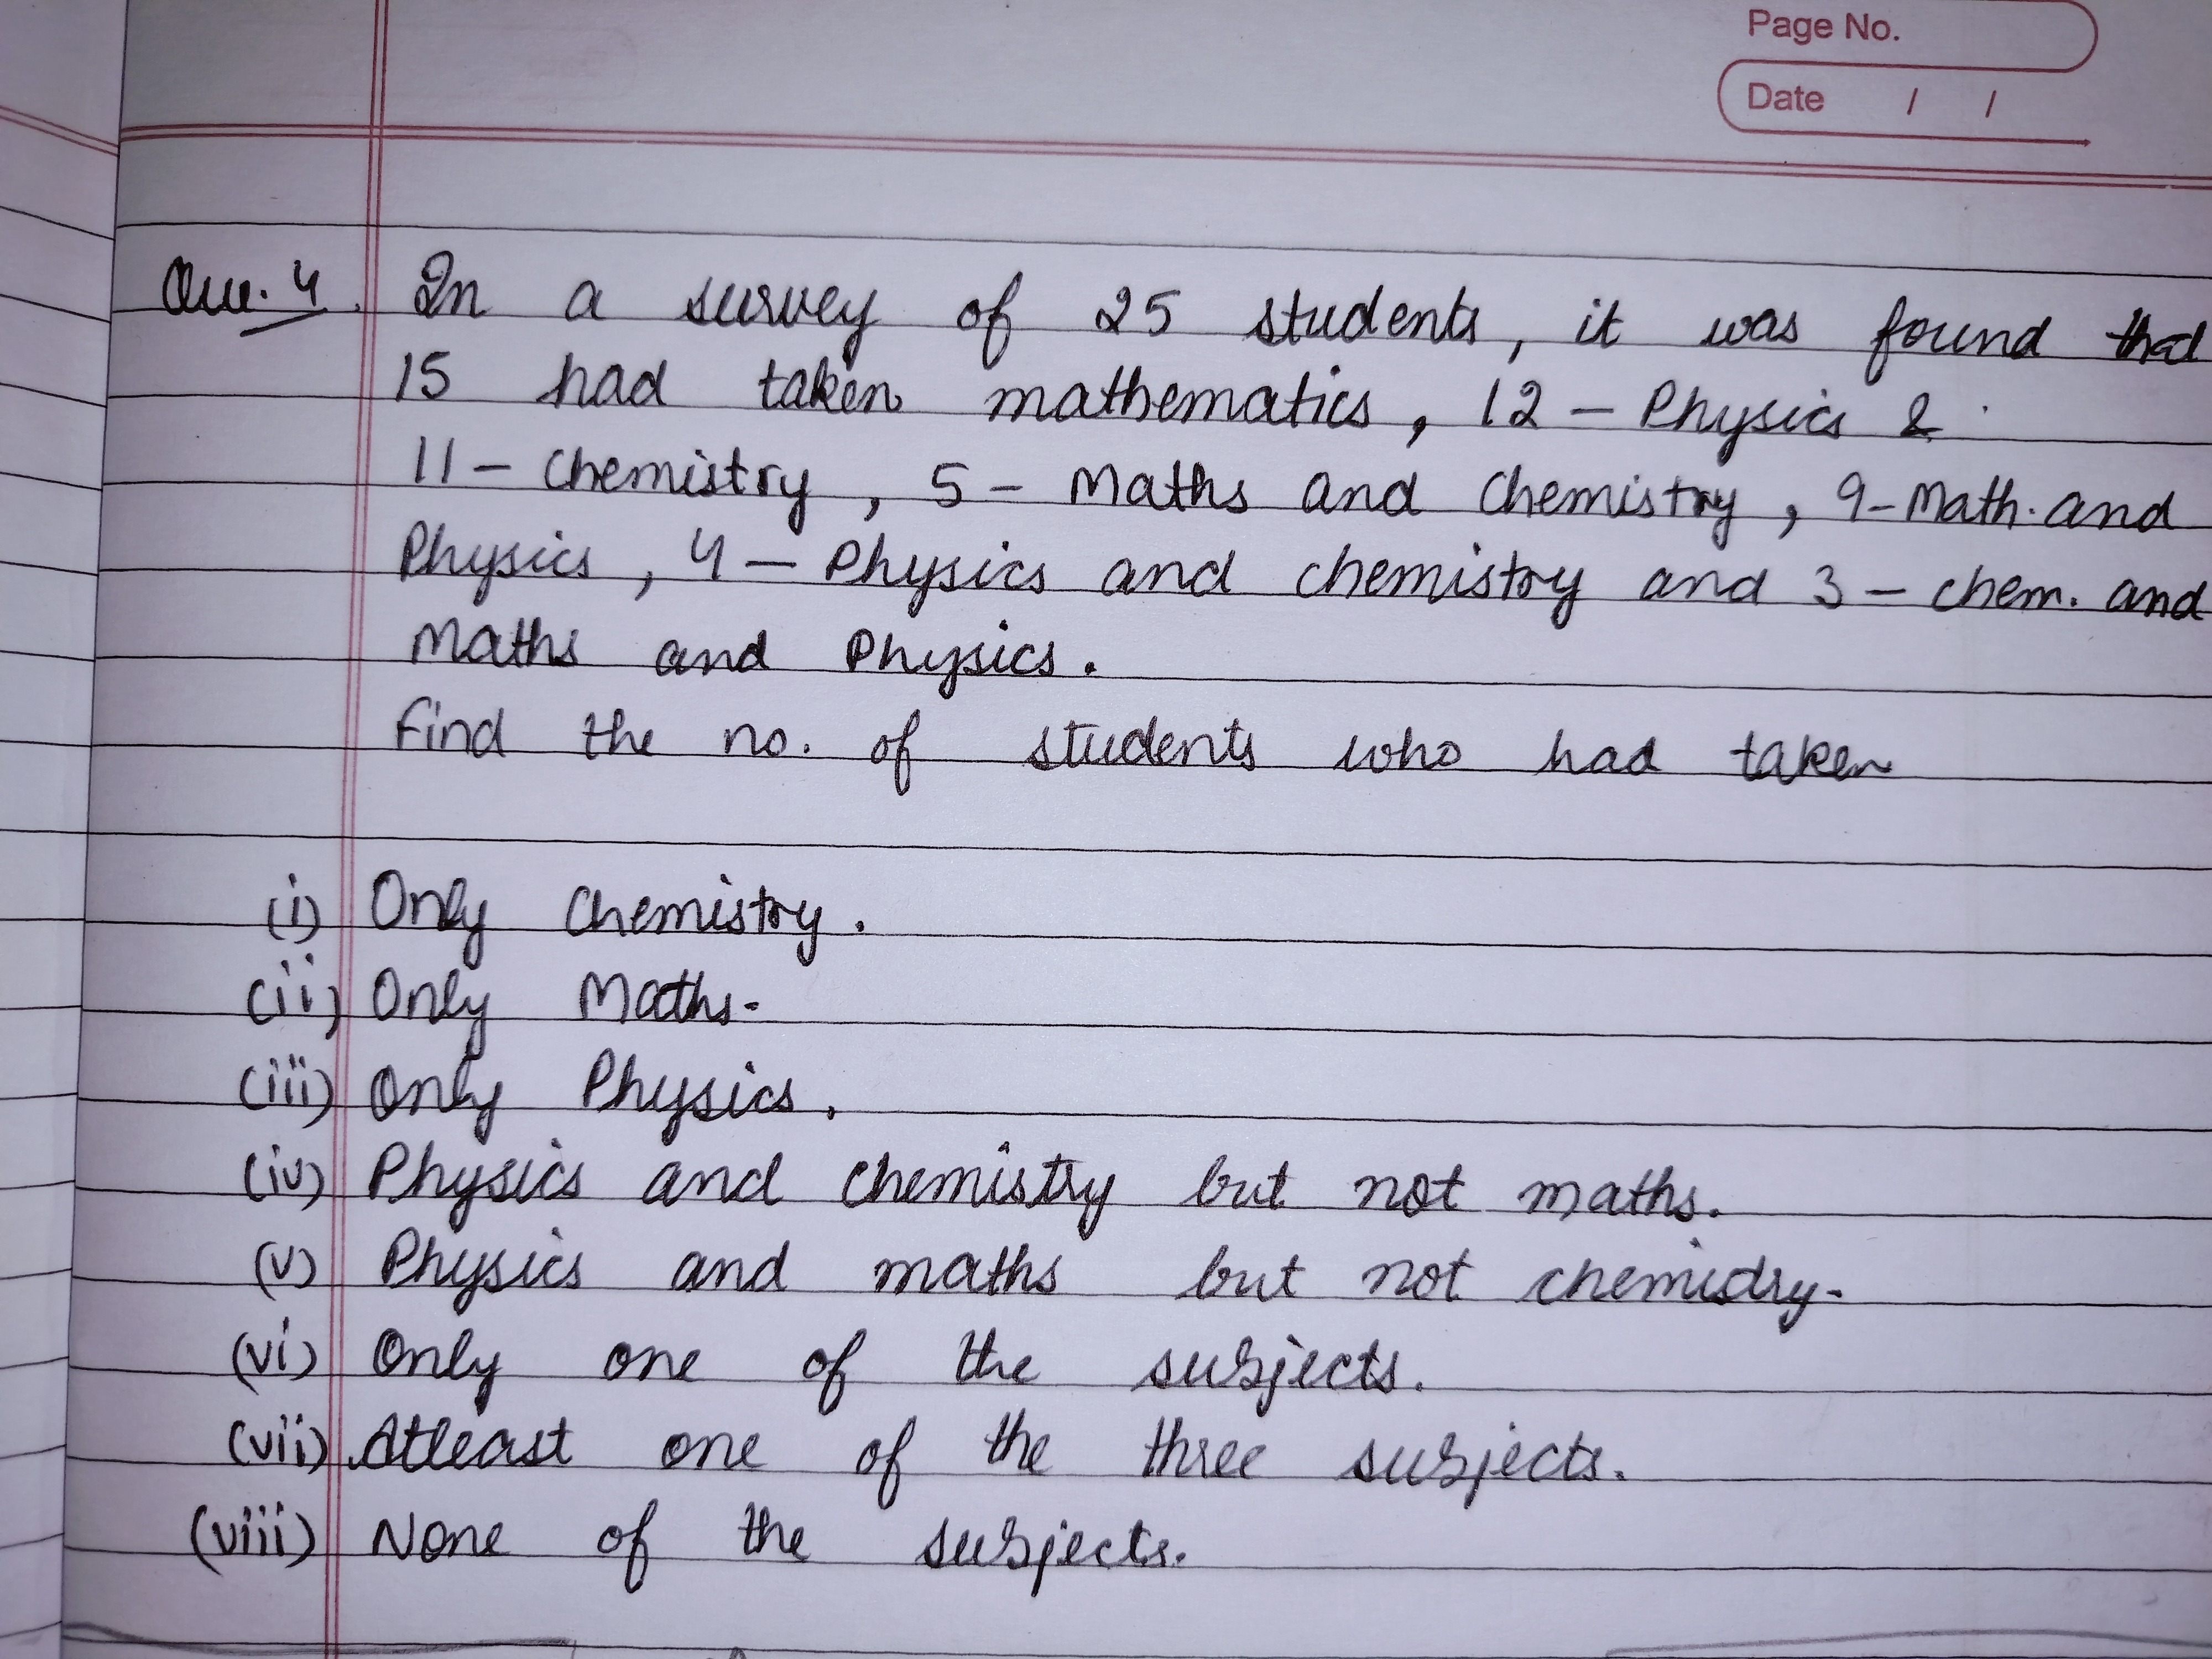 Page No.
Date / /
Que. 4. In a survey of 25 students, it was found that
15 had taken mathematics, 12 - Physics &
11 - Chemistry, 5 - Maths and Chemistry, 9 - Math. and
Physics, 4 - Physics and chemistry and 3 - chem. and
Maths and Physics.
Find the no. of students who had taken
(i) Only Chemistry.
(ii) Only Maths.
(iii) Only Physics.
(iv) Physics and chemistry but not maths.
(v) Physics and maths but not chemistry.
(vi) Only one of the subjects.
(vii) Atleast one of the three subjects.
(viii) None of the subjects.